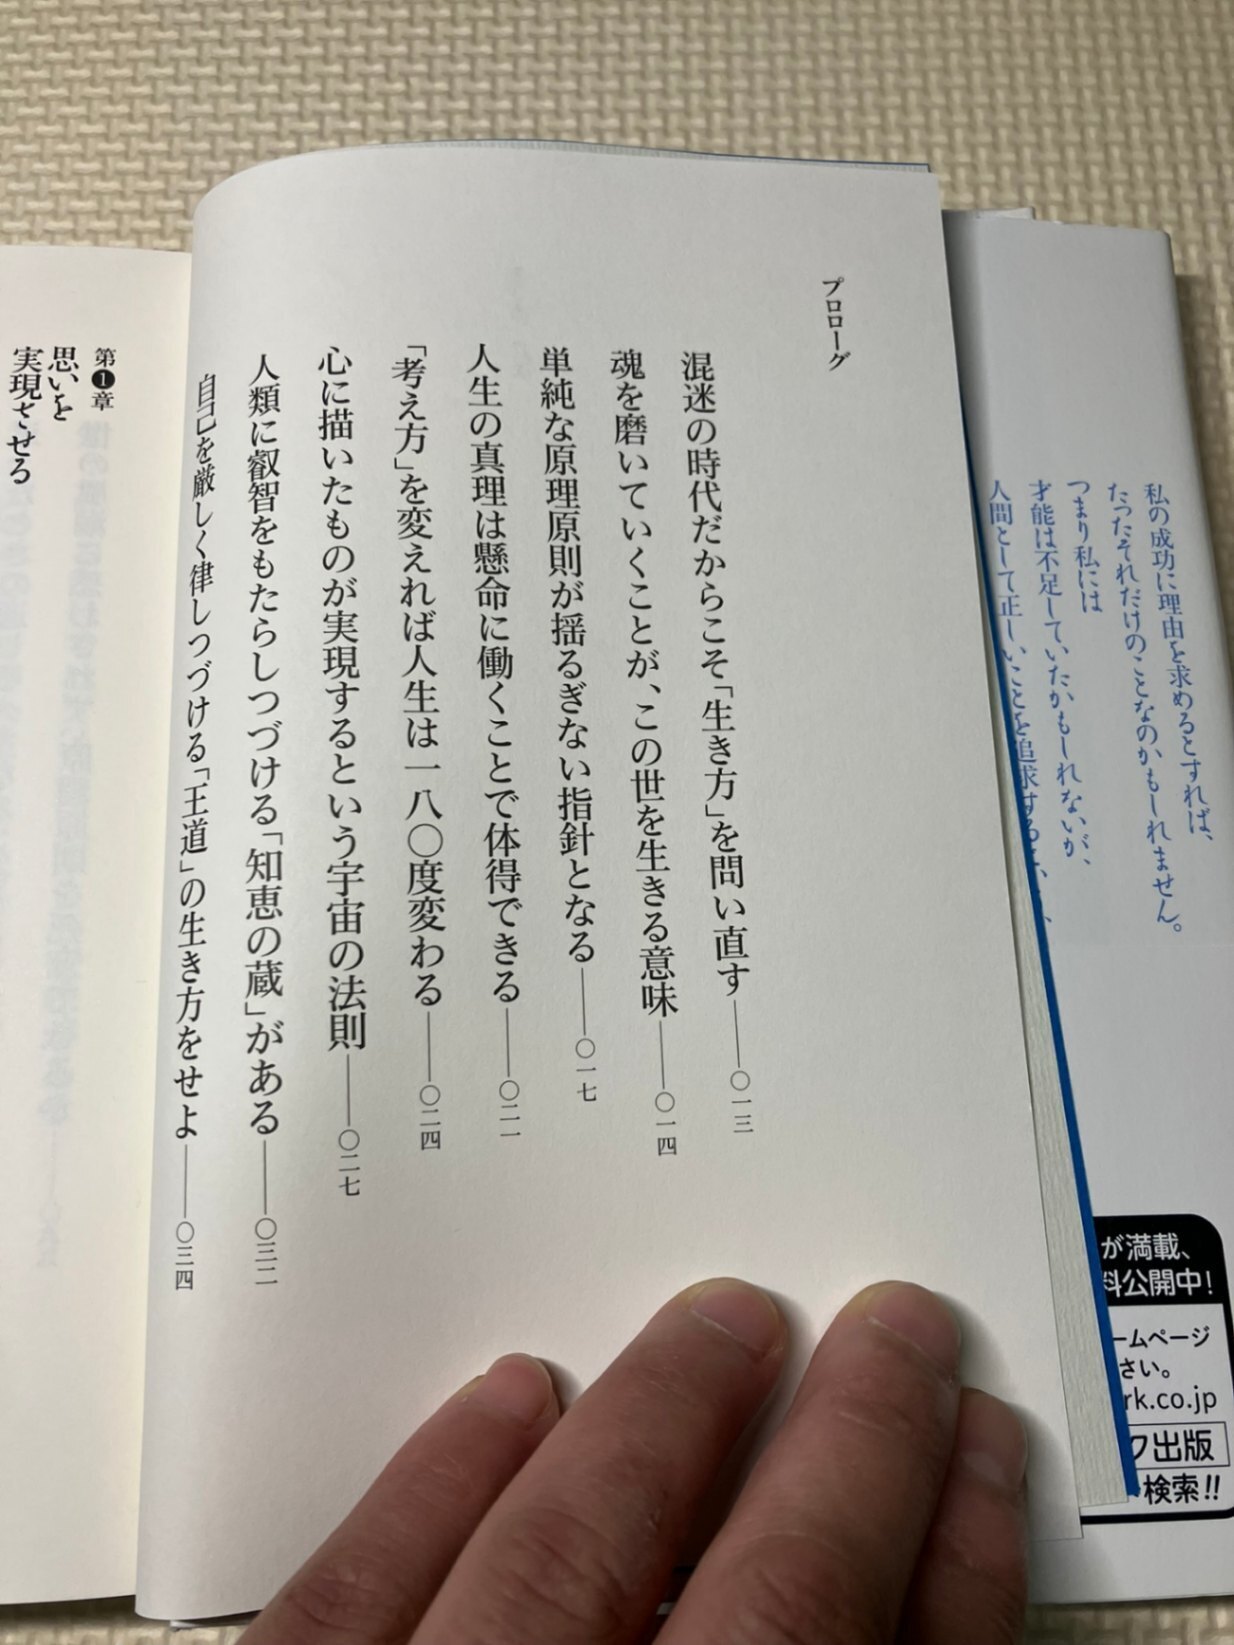 私の成功に理由を求めるとすれば、
たったそれだけのことなのかもしれません。
つまり私には
才能は不足していたかもしれないが、
人間として正しいことを追求する
が満載、
料公開中!
ームページ
さい。
rk.co.jp
ク出版
検索!!
プロローグ
混迷の時代だからこそ「生き方」を問い直す――〇一三
魂を磨いていくことが、この世を生きる意味――〇一四
単純な原理原則が揺るぎない指針となる――〇一七
人生の真理は懸命に働くことで体得できる――〇二一
「考え方」を変えれば人生は一八〇度変わる――〇二四
心に描いたものが実現するという宇宙の法則――〇二七
人類に叡智をもたらしつづける「知恵の蔵」がある――〇三二
自己を厳しく律しつづける「王道」の生き方をせよ――〇三四
第❶章
思いを
実現させる